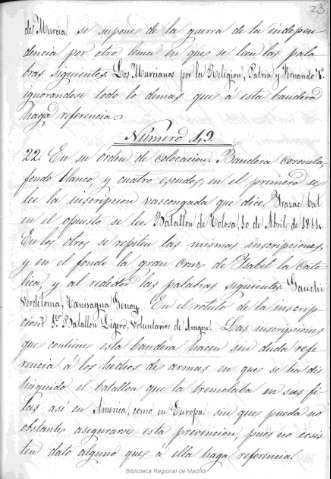 23
de Murcia se supone de la guerra de la indepen
dencia por otro lema en que se lean las pala
bras siguientes. Los Murcianos por la Religion, Patria y Fernando 7º
ignorandose todo lo demas que á esta bandera
haga referencia.
Número 49.
22. En su orden de colocacion. Bandera Coronela,
fondo blanco, y cuatro escudos, en el primero se
lee la inscripcion vascongada que dice,
en el opuesto se lee Batallon de Tolosa, 10 de Abril de 1814.
En los otros se repiten las mismas inscripciones,
y en el fondo la gran Cruz de Isabel la Cató
lica, y al rededor las palabras siguientes
En el rotulo de la inscrip
cion Batallon Ligero, Voluntarios de Aragon. Las inscripciones
que contiene esta bandera hacen sin duda refe
rencia á los hechos de armas en que se ha dis
tinguido el batallon que la tremolaba en sus fi
las asi en America, como en Europa sin que pueda no
obstante asegurarse esta prevencion, pues no ecsis
ten dato alguno que á ella haga referencia.
Biblioteca Regional de Madrid